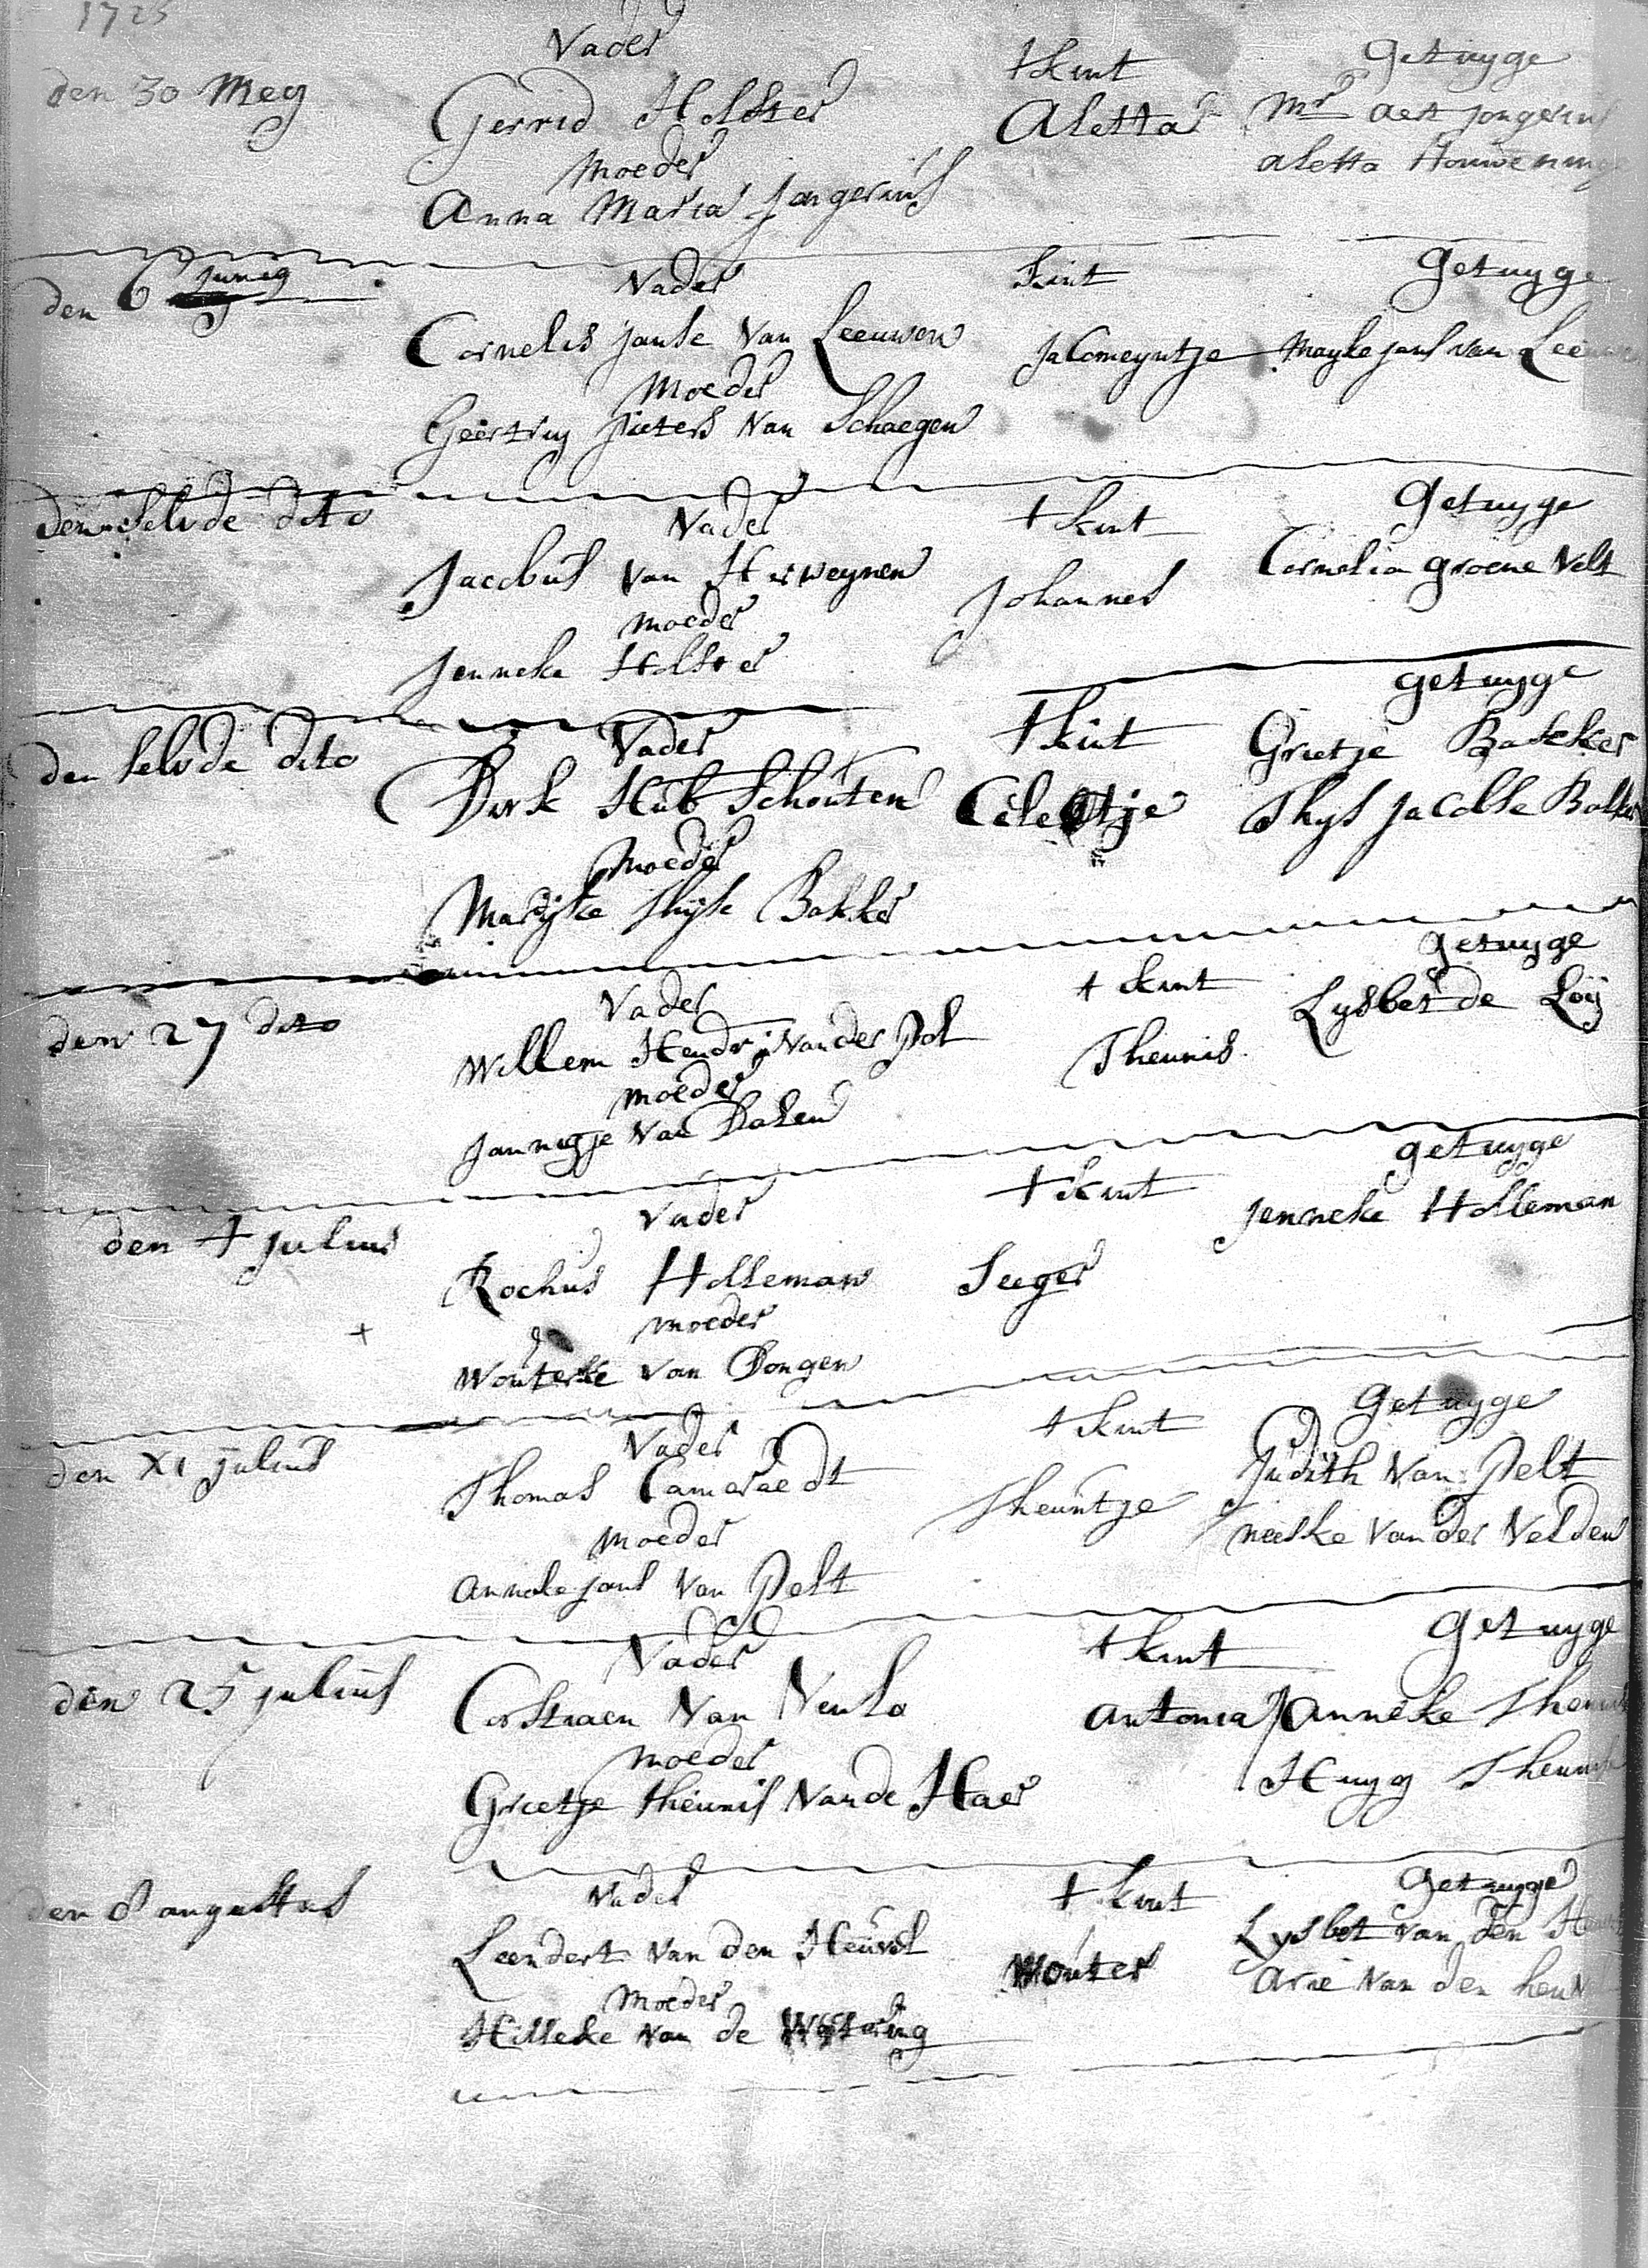 1725
Vader 't kint Getuyge
den 30 Mey Gerrid Holster Aletta Mr Aert Jongerius
Moeder Aletta Houwening
Anna Maria Jongerius
den 6 Juney Vader kint Getuyge
Cornelis janse Van Leeuwen Jacomeyntje Mayke jans van Leeuwen
Moeder
Geertruy pieters Van Schaegen
den selvde dito Vader 't kint Getuyge
Jacobus van Herweynen Johannes Cornelia groene Velt
moeder
Jenneke Holster
den selvde dito Vader 't kint getuyge
Dirk Hub Schouten Grietje Backer
moeder Thys Jacobse Bakker
Maryke thyse Bakker
den 27 dito Vader 't kint getuyge
Willem Hendr: Van der Pol Theunis Lysbet de Loy
moeder
Jannigje Van Dalen
den 4 Julius Vader 't kint getuyge
Rochus Holleman Seeger Jenneke Holleman
moeder
Wouterke van Dongen
den XI julius Vader 't kint Getuyge
Thomas Cameraedt Theuntje Judith Van Pelt
moeder neeske Van der Velden
anneke jans Van Pelt
den 25 julius Vader 't kint Getuyge
Corstiaen Van Venlo antonia Janneke
moeder Huyg
Grietje theunis Van de Haer
den 8 augustus Vader 't kint Getuyge
Leendert van den Heuvel Wouter Lysbet van den
Moeder Arie Van den heuvel
Hilleke van de Watering